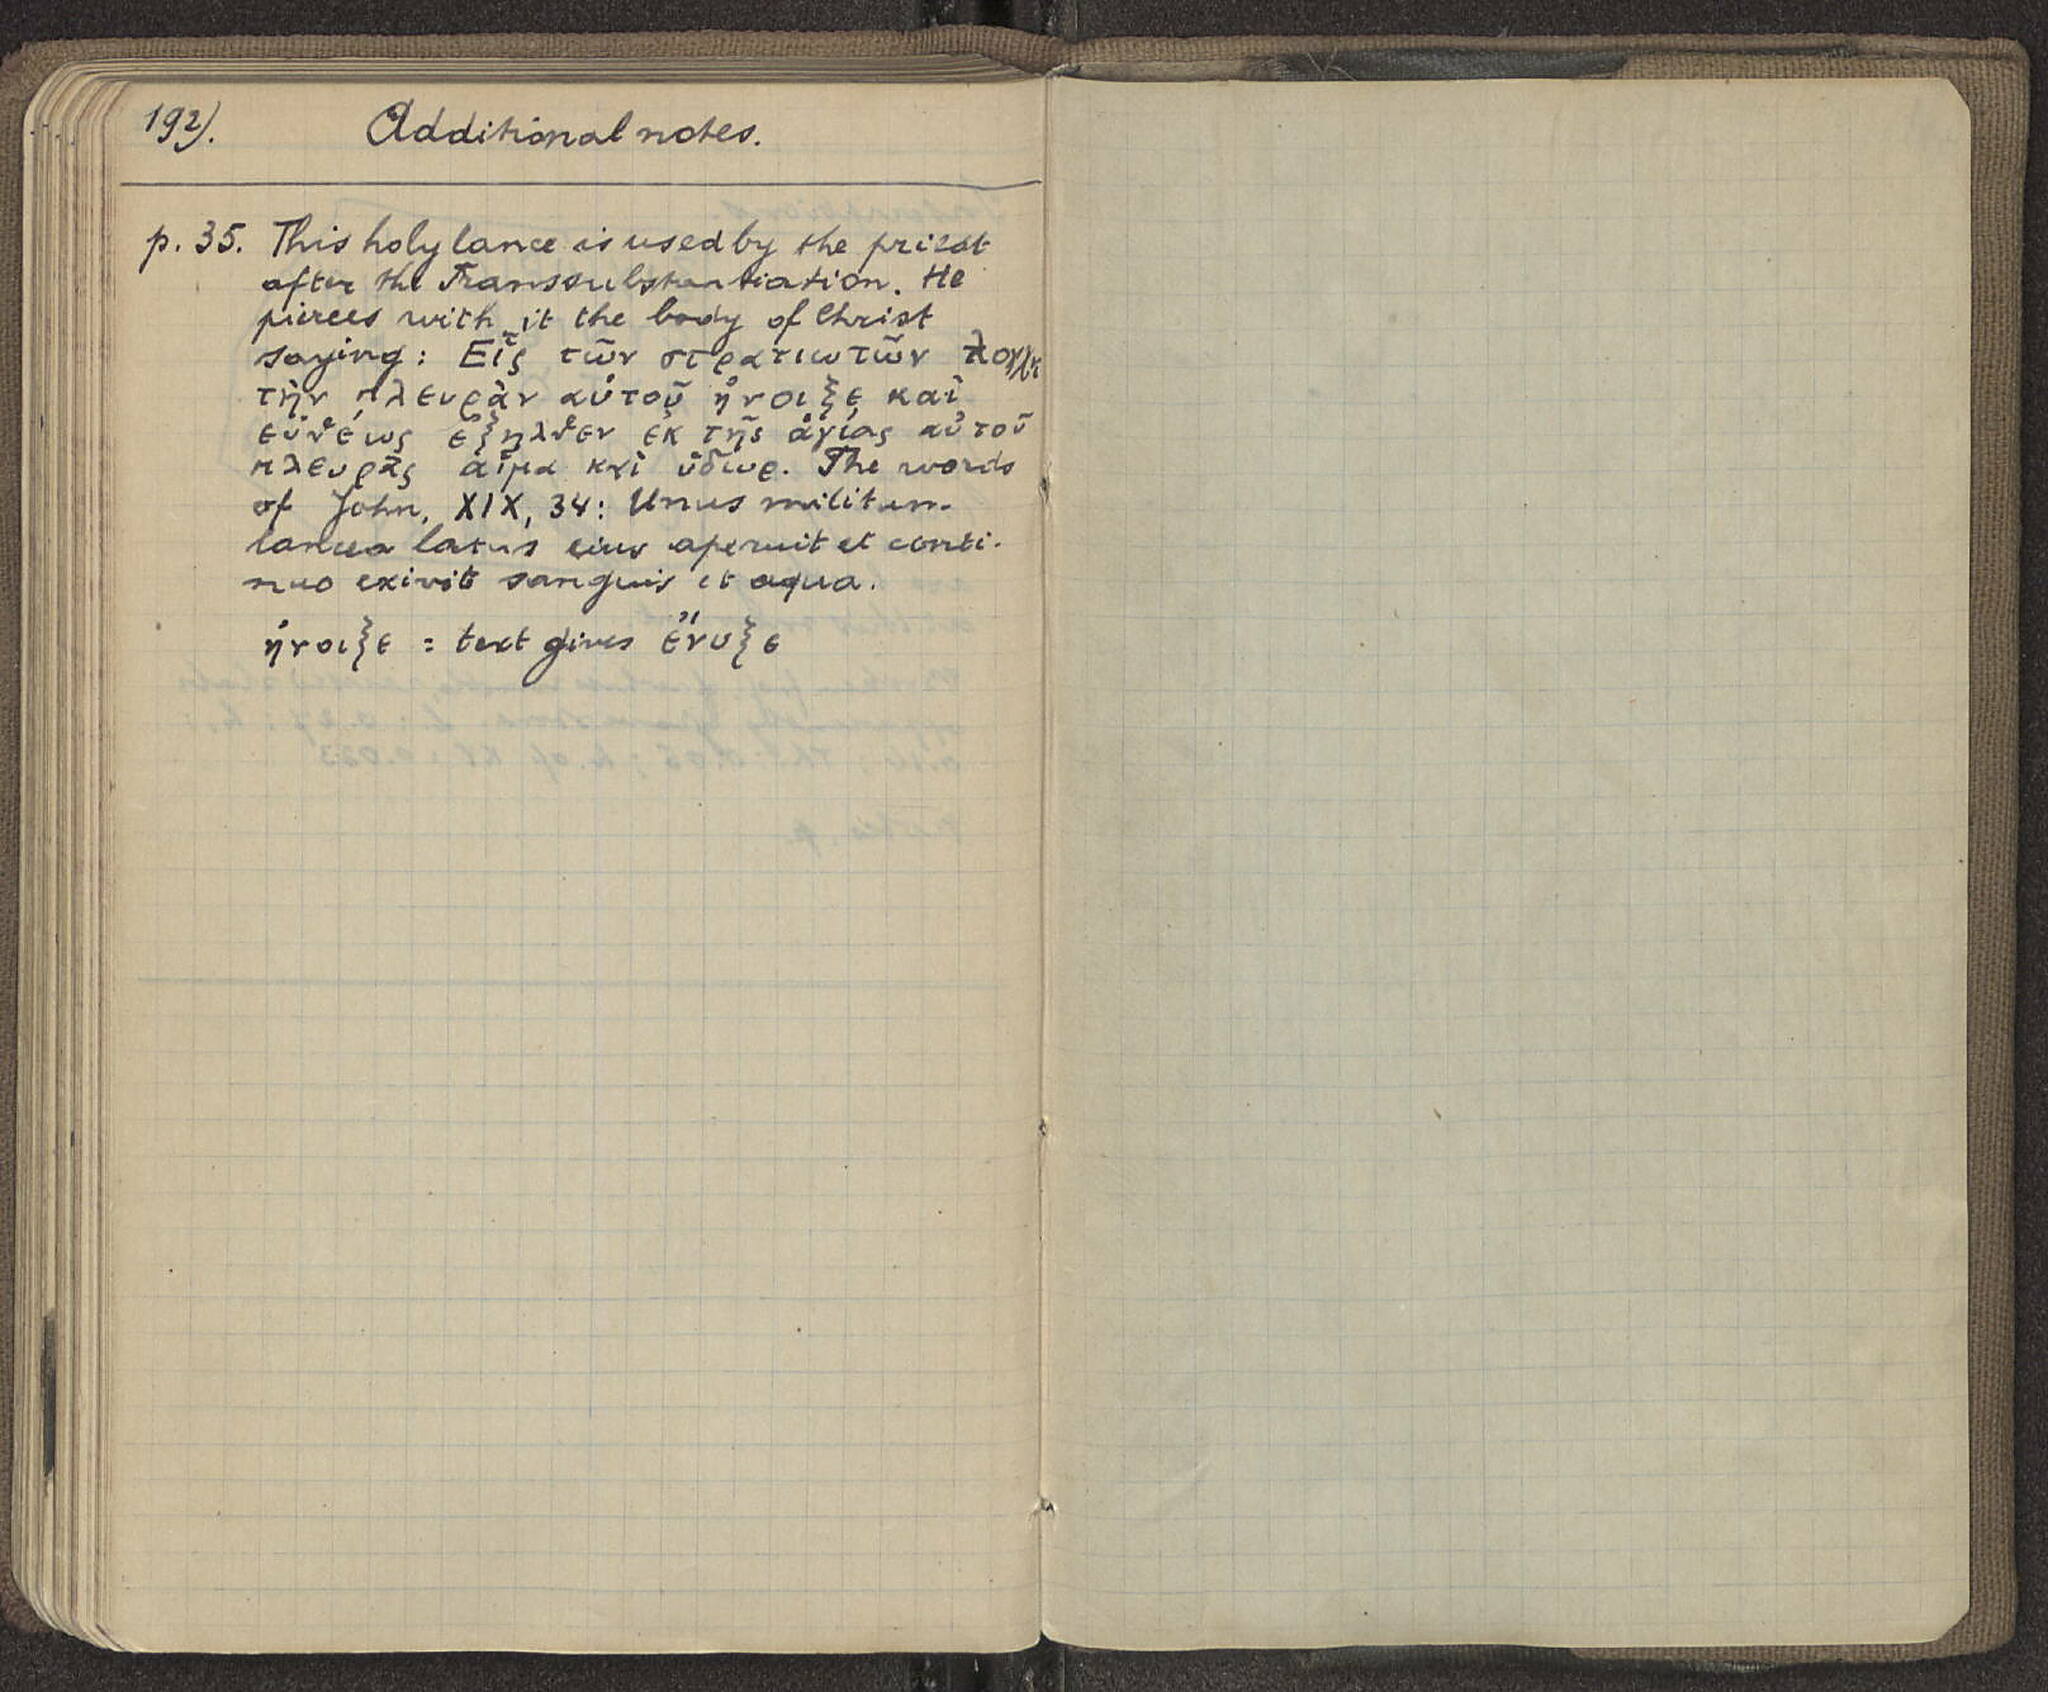 192). Additional notes.
p. 35. This holy lance is used by the priest
after the Transsubstantiation. He
pierces with it the body of Christ
saying: Εἷς τῶν στρατιωτῶν λόγχῃ
τὴν πλευρὰν αὐτοῦ ἤνοιξε καὶ
εὐθέως ἐξῆλθεν ἐκ τῆς ἁγίας αὐτοῦ
πλευρᾶς αἷμα καὶ ὕδωρ. The words
of John, XIX, 34: Unus militum
lancea latus eius aperuit et conti-
nuo exivit sanguis et aqua.
ἤνοιξε = text gives ἔνυξε